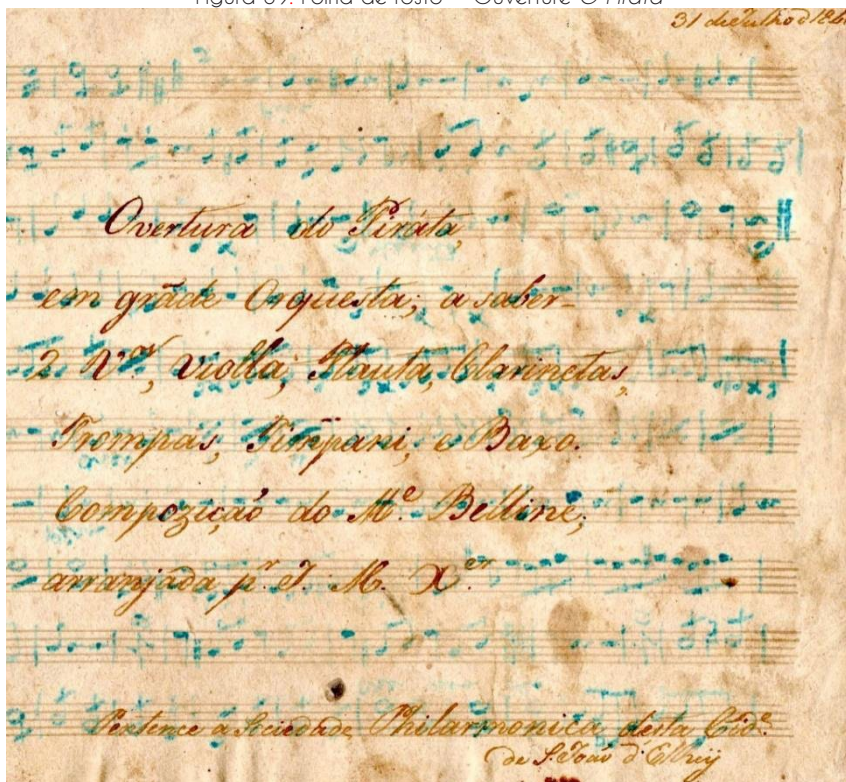 Figura 39. Folha de rosto – Ouverture O Pirata
31 de Julho d 186
Overtura do Piráta,
em grãde Orquesta; a saber-
2 V.os, violla, Flauta, Clarinetas,
Trompas, Timpani, e Baxo.
Compozição do M.e Belline;
arranjada p.r J. M. X.er
Pertence a Sociedade Philarmonica desta Cid.e
de S. João d'ElRey